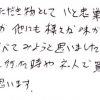 ただき物として いと恵業
が 他にも様々な味が
べてみようと思いました
行った時や 友人で買
思います.